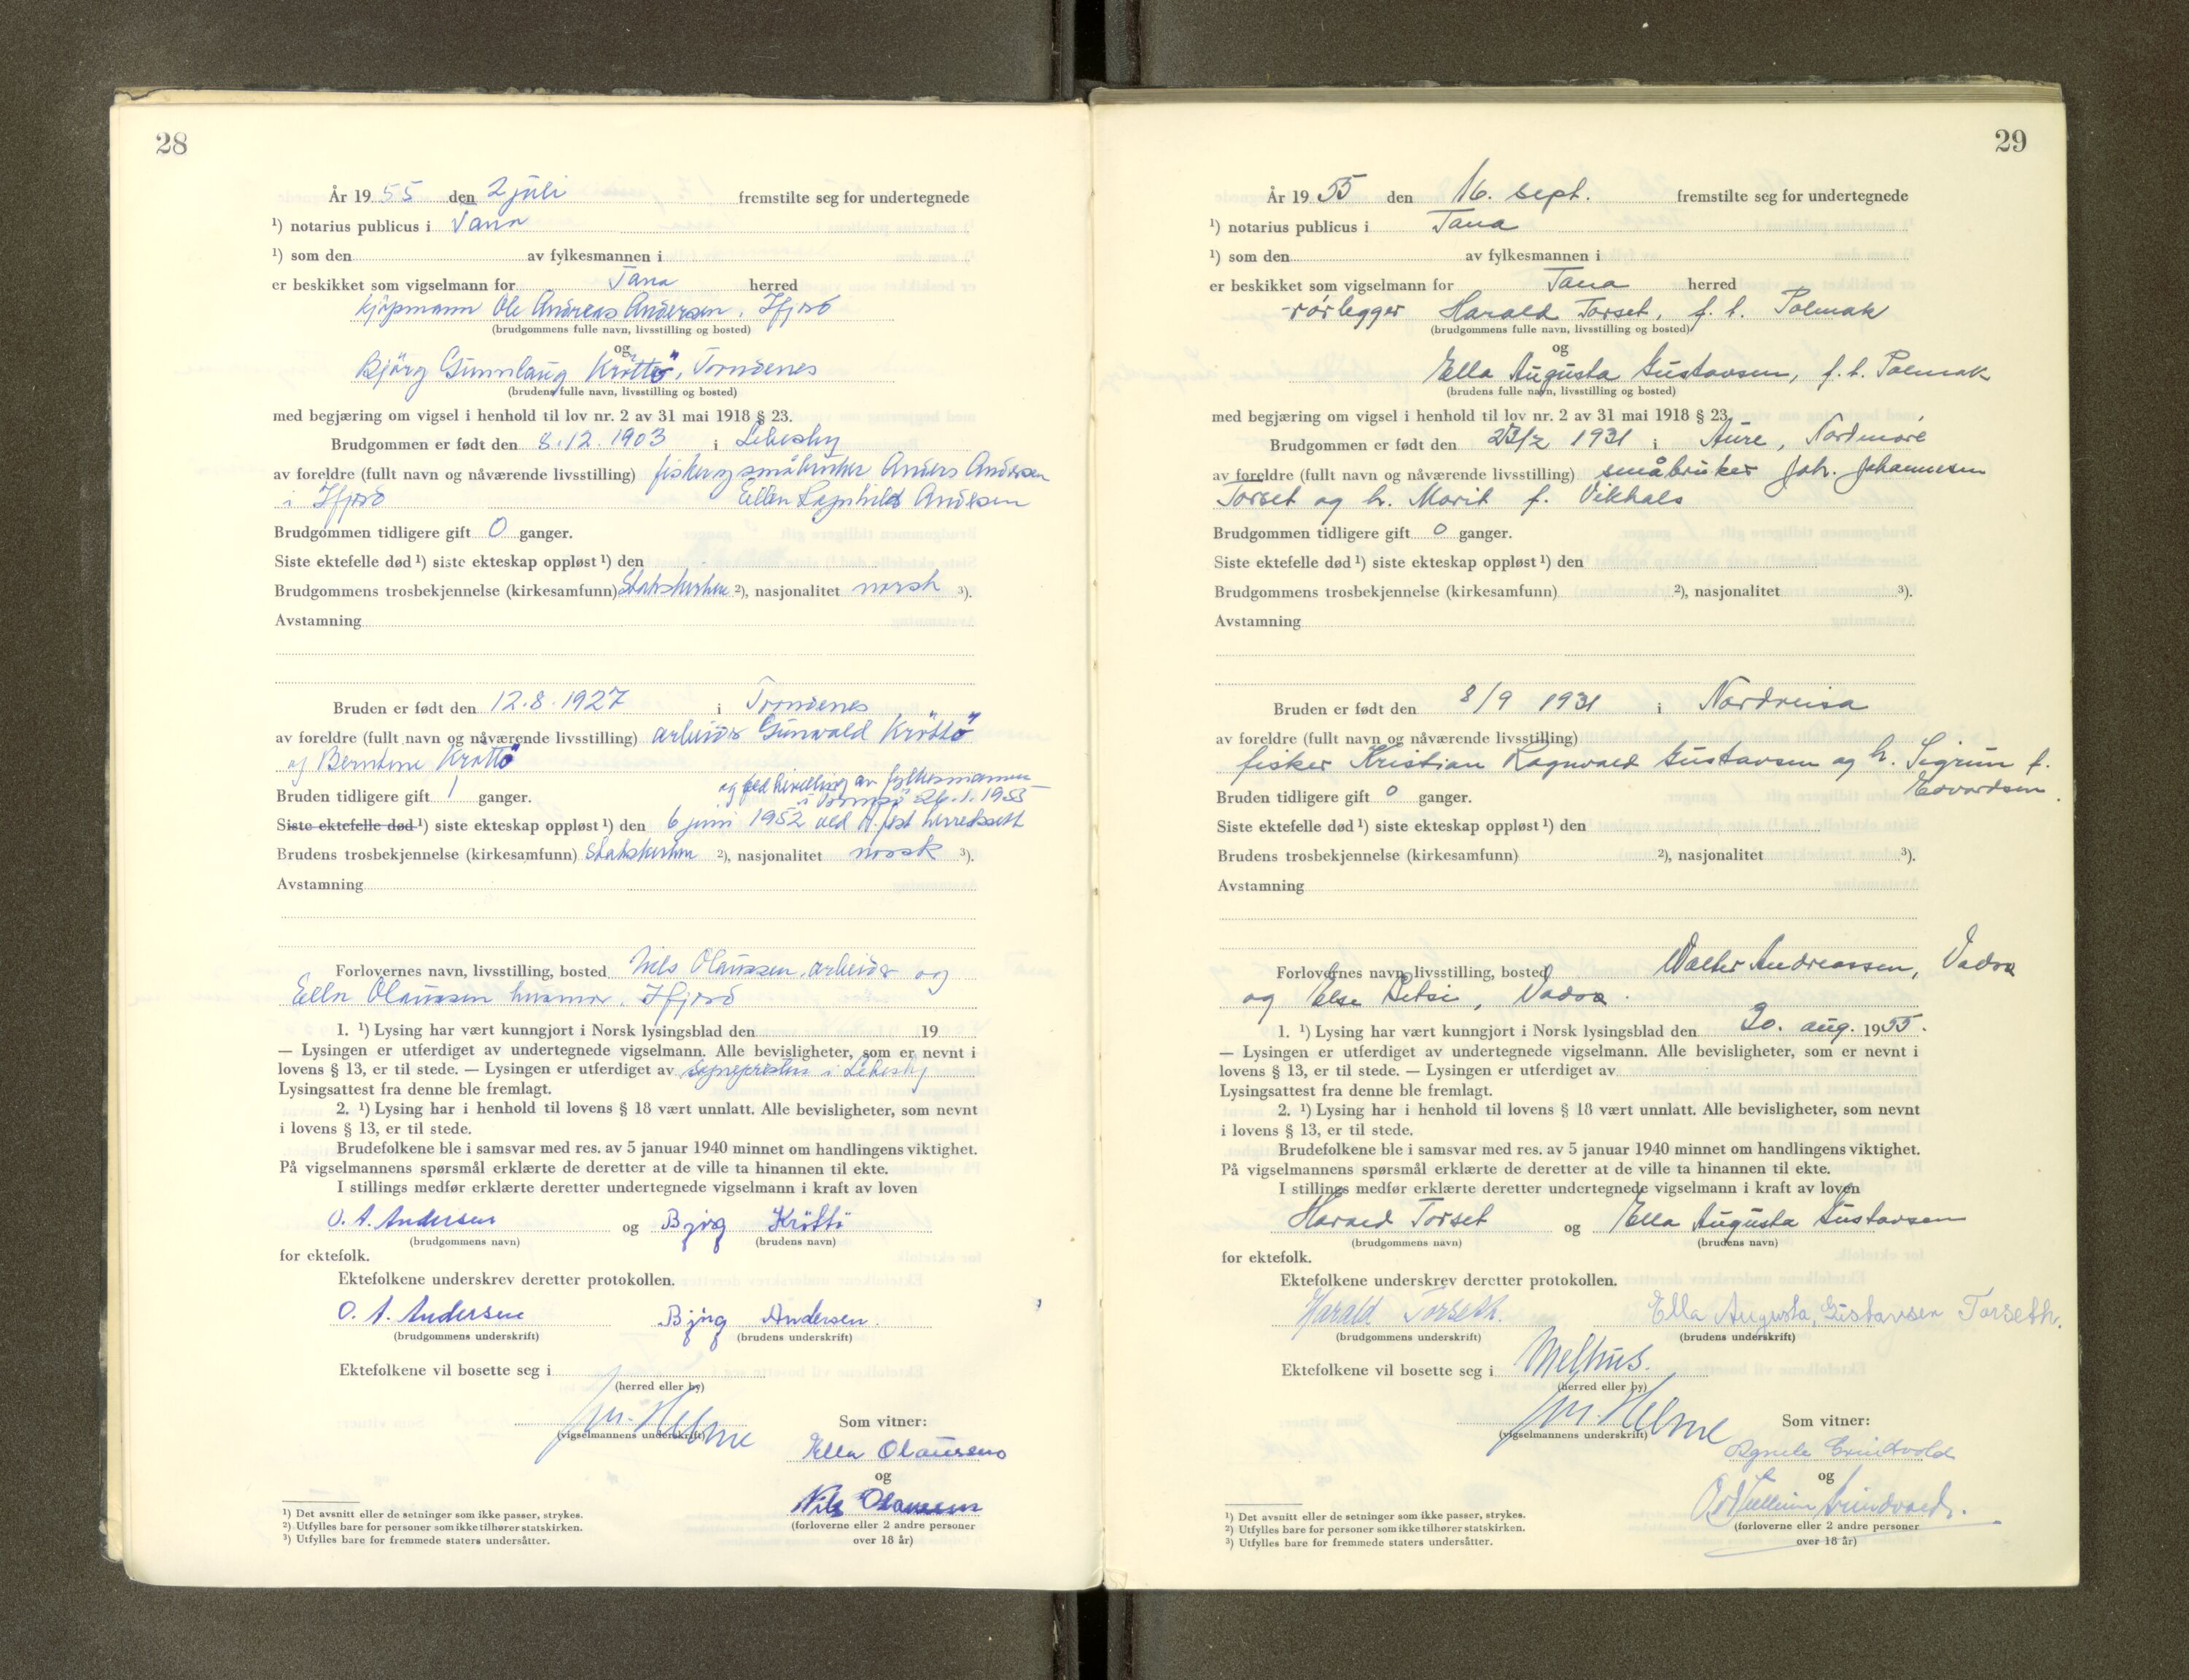 28
År 1955 den 2 juli fremstilte seg for undertegnede
¹) notarius publicus i Tana
¹) som den av fylkesmannen i
er beskikket som vigselmann for Tana herred
kjøpmann Ole Andreas Andersen, Ifjord
(brudgommens fulle navn, livsstilling og bosted)
og
Bjørg Gunnlaug Krøttö, Trondenes
(brudens fulle navn, livsstilling og bosted)
med begjæring om vigsel i henhold til lov nr. 2 av 31 mai 1918 § 23.
Brudgommen er født den 8.12.1903 i Lebesby
av foreldre (fullt navn og nåværende livsstilling) fisker og småbruker Anders Andersen
i Ifjord Ellen Ragnhild Andersen
Brudgommen tidligere gift 0 ganger.
Siste ektefelle død ¹) siste ekteskap oppløst ¹) den
Brudgommens trosbekjennelse (kirkesamfunn) Statskirken ²), nasjonalitet norsk ³).
Avstamning
Bruden er født den 12.8.1927 i Trondenes
av foreldre (fullt navn og nåværende livsstilling) arbeider Gunvald Krøttö
og Berntine Krøttö
og ved bevilling av fylkesmannen
Bruden tidligere gift 1 ganger. i Tromsø 26.1.1955
Siste ektefelle død ¹) siste ekteskap oppløst ¹) den 6 juni 1952 ved herredsrett
Brudens trosbekjennelse (kirkesamfunn) Statskirken ²), nasjonalitet norsk ³).
Avstamning
Forlovernes navn, livsstilling, bosted Nils Olaussen, arbeider og
Ella Olaussen husmor, Ifjord
1. ¹) Lysing har vært kunngjort i Norsk lysingsblad den 19
— Lysingen er utferdiget av undertegnede vigselmann. Alle bevisligheter, som er nevnt i
lovens § 13, er til stede. — Lysingen er utferdiget av sognepresten i Lebesby
Lysingsattest fra denne ble fremlagt.
2. ¹) Lysing har i henhold til lovens § 18 vært unnlatt. Alle bevisligheter, som nevnt
i lovens § 13, er til stede.
Brudefolkene ble i samsvar med res. av 5 januar 1940 minnet om handlingens viktighet.
På vigselmannens spørsmål erklærte de deretter at de ville ta hinannen til ekte.
I stillings medfør erklærte deretter undertegnede vigselmann i kraft av loven
O. A. Andersen og Bjørg Krøttö
(brudgommens navn) (brudens navn)
for ektefolk.
Ektefolkene underskrev deretter protokollen.
O. A. Andersen Bjørg Andersen.
(brudgommens underskrift) (brudens underskrift)
Ektefolkene vil bosette seg i
(herred eller by)
Helme
(vigselmannens underskrift)
Som vitner:
Ella Olaussen
og
Nils Olaussen
(forloverne eller 2 andre personer
over 18 år)
¹) Det avsnitt eller de setninger som ikke passer, strykes.
²) Utfylles bare for personer som ikke tilhører statskirken.
³) Utfylles bare for fremmede staters undersåtter.
29
År 1955 den 16. sept. fremstilte seg for undertegnede
¹) notarius publicus i Tana
¹) som den av fylkesmannen i
er beskikket som vigselmann for Tana herred
rørlegger Harald Torset, f. t. Polmak
(brudgommens fulle navn, livsstilling og bosted)
og
Ella Augusta Gustavsen, f. t. Polmak
(brudens fulle navn, livsstilling og bosted)
med begjæring om vigsel i henhold til lov nr. 2 av 31 mai 1918 § 23.
Brudgommen er født den 23/2 1931 i Aure, Nordmøre
av foreldre (fullt navn og nåværende livsstilling) småbruker Joh. Johannesen
Torset og h. Marit f. Vikhals
Brudgommen tidligere gift 0 ganger.
Siste ektefelle død ¹) siste ekteskap oppløst ¹) den
Brudgommens trosbekjennelse (kirkesamfunn) ²), nasjonalitet ³).
Avstamning
Bruden er født den 8/9 1931 i Nordreisa
av foreldre (fullt navn og nåværende livsstilling)
fisker Kristian Ragnvald Gustavsen og h. Sigrun f.
Edvardsen.
Bruden tidligere gift 0 ganger.
Siste ektefelle død ¹) siste ekteskap oppløst ¹) den
Brudens trosbekjennelse (kirkesamfunn) ²), nasjonalitet ³).
Avstamning
Forlovernes navn, livsstilling, bosted Walter Andreassen, Vadsø
og Else Betsi, Vadsø.
1. ¹) Lysing har vært kunngjort i Norsk lysingsblad den 30. aug. 1955.
— Lysingen er utferdiget av undertegnede vigselmann. Alle bevisligheter, som er nevnt i
lovens § 13, er til stede. — Lysingen er utferdiget av
Lysingsattest fra denne ble fremlagt.
2. ¹) Lysing har i henhold til lovens § 18 vært unnlatt. Alle bevisligheter, som nevnt
i lovens § 13, er til stede.
Brudefolkene ble i samsvar med res. av 5 januar 1940 minnet om handlingens viktighet.
På vigselmannens spørsmål erklærte de deretter at de ville ta hinannen til ekte.
I stillings medfør erklærte deretter undertegnede vigselmann i kraft av loven
Harald Torset og Ella Augusta Gustavsen
(brudgommens navn) (brudens navn)
for ektefolk.
Ektefolkene underskrev deretter protokollen.
Harald Torseth. Ella Augusta, Gustavsen Torseth.
(brudgommens underskrift) (brudens underskrift)
Ektefolkene vil bosette seg i Melhus.
(herred eller by)
Helme
(vigselmannens underskrift)
Som vitner:
Agnete Grindvold
og
Grindvold.
(forloverne eller 2 andre personer
over 18 år)
¹) Det avsnitt eller de setninger som ikke passer, strykes.
²) Utfylles bare for personer som ikke tilhører statskirken.
³) Utfylles bare for fremmede staters undersåtter.